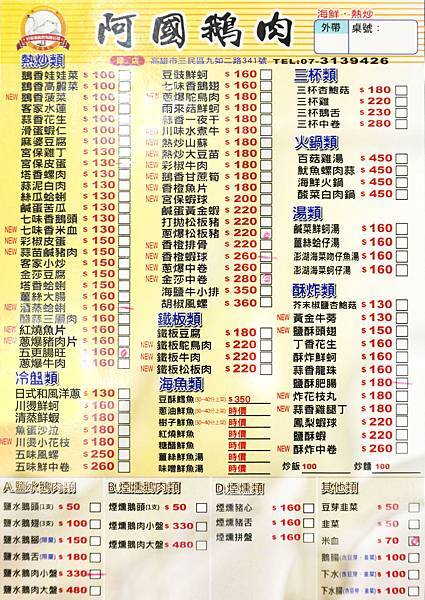 阿國鵝肉
海鮮．熱炒
外帶 桌號：
高雄市三民區九如二路341號 TEL:07-3139426
熱炒類
鵝香娃娃菜 $100
鵝香高麗菜 $100
NEW 鵝香菠菜 $100
客家水蓮 $100
蒜香花生 $100
滑蛋蝦仁 $100
麻婆豆腐 $100
宮保雞丁 $130
宮保皮蛋 $130
塔香螺肉 $130
蒜泥白肉 $130
絲瓜蛤蜊 $130
鹹蛋苦瓜 $130
七味香鵝頭 $130
NEW 七味香米血 $130
NEW 彩椒皮蛋 $130
NEW 蒜苗鹹豬肉 $150
客家小炒 $150
金莎豆腐 $150
塔香蛤蜊 $160
薑絲大腸 $160
NEW 酒蒸蛤蜊 $160
$160
NEW 紅燒魚片 $160
NEW 蔥爆豬肉片 $160
五更腸旺 $160
蔥爆牛肉 $160
冷盤類
日式和風洋蔥 $130
川燙鮮蚵 $160
清蒸鮮蝦 $180
魚蛋沙拉 $180
NEW 川燙小花枝 $180
五味風螺 $250
五味鮮中卷 $260
豆豉鮮蚵 $160
七味香鵝翅 $160
NEW 蔥爆鴕鳥肉 $160
雨來菇鮮蚵 $160
蒜香一夜干 $160
NEW 川味水煮牛 $160
NEW 熱炒山蘇 $160
NEW 熱炒大豆苗 $160
NEW 彩椒牛肉 $160
NEW 鵝香甘蔗筍 $160
NEW 香橙魚片 $160
NEW 宮保蝦球 $200
鹹蛋黃金蝦 $220
打拋松板豬 $220
蔥爆松板豬 $220
NEW 香橙排骨 $220
NEW 香橙蝦球 $260
NEW 蔥爆中卷 $260
NEW 金莎中卷 $280
海鹽牛小排 $350
胡椒風螺 $360
鐵板類
鐵板豆腐 $180
NEW 鐵板鴕鳥肉 $220
NEW 鐵板牛肉 $220
NEW 鐵板松板肉 $220
海魚類
豆酥鱈魚(30~40分上菜) $350
蔥油鮮魚(30~40分上菜) 時價
樹子鮮魚(30~40分上菜) 時價
紅燒鮮魚 時價
糖醋鮮魚 時價
薑絲鮮魚湯 時價
味噌鮮魚湯 時價
三杯類
三杯杏鮑菇 $180
三杯雞 $220
三杯鵝舌 $230
三杯中卷 $280
火鍋類
百菇雞湯 $450
魷魚螺肉蒜 $450
海鮮火鍋 $450
酸菜白肉鍋 $450
湯類
鹹菜鮮蚵湯 $160
薑絲蛤仔湯 $160
澎湖海菜吻仔魚湯 $160
澎湖海菜蚵仔湯 $160
酥炸類
芥末椒鹽杏鮑菇 $130
NEW 黃金牛蒡 $130
NEW 鹽酥頭翅 $150
丁香花生 $160
酥炸鮮蚵 $160
蒜香龍珠 $160
鹽酥肥腸 $180
NEW 炸花枝丸 $180
NEW 蒜香雞腿丁 $180
鳳梨蝦球 $220
鹽酥蝦 $220
NEW 酥炸中卷 $260
炒飯 100 炒麵 100
A.鹽水鵝肉類
鹽水鵝頭(1支) $50
鹽水鵝翅(3支) $100
鹽水鵝腳(限量) $150
鹽水鵝舌(限量) $180
鹽水鵝肉小盤 $330
鹽水鵝肉大盤 $480
B.煙燻鵝肉類
煙燻鵝頭(1支) $50
煙燻鵝肉小盤 $330
煙燻鵝肉大盤 $480
D.煙燻類
煙燻豬心 $160
煙燻豬舌 $160
煙燻拼盤 $160
其他類
豆芽韭菜 $50
韭菜 $50
米血 $70
鵝腸(含豆芽、韭菜) $100
下水(含豆芽、韭菜) $100
下水湯 $100